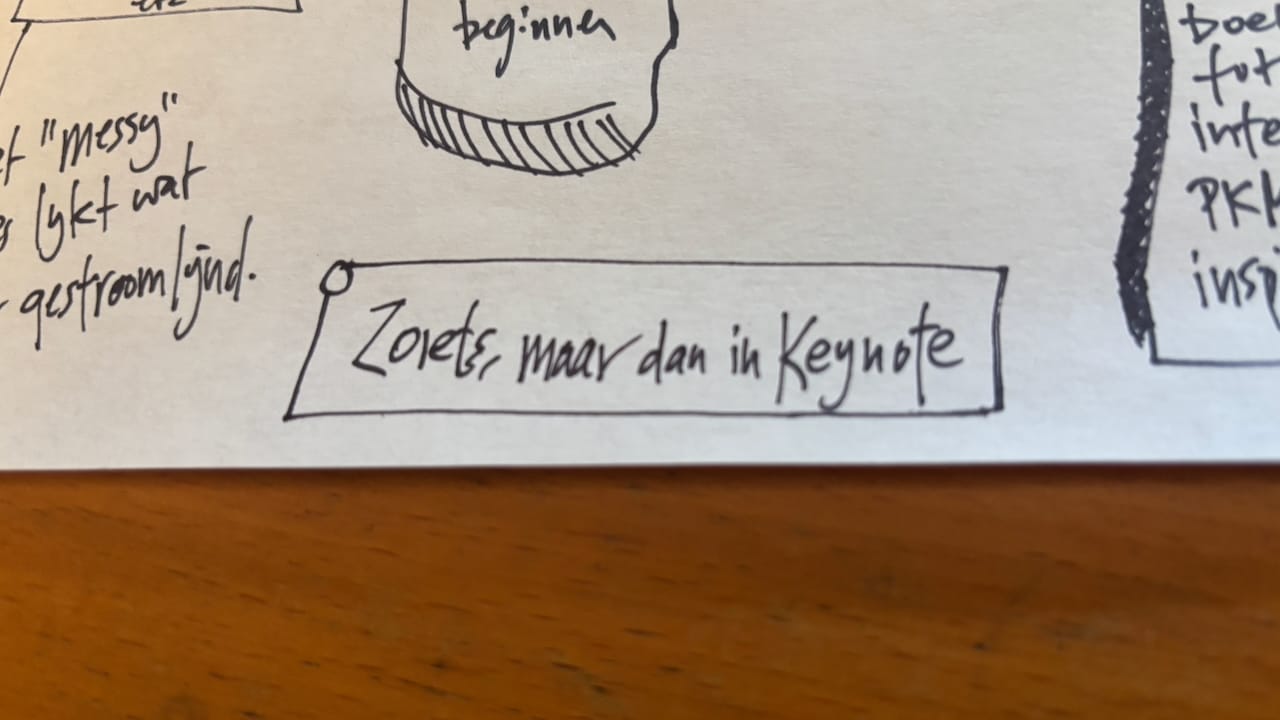 etc
beginnen
"messy"
lijkt wat
gestroomlijnd.
Zoiets, maar dan in Keynote
boe
fot
inte
PKM
insp